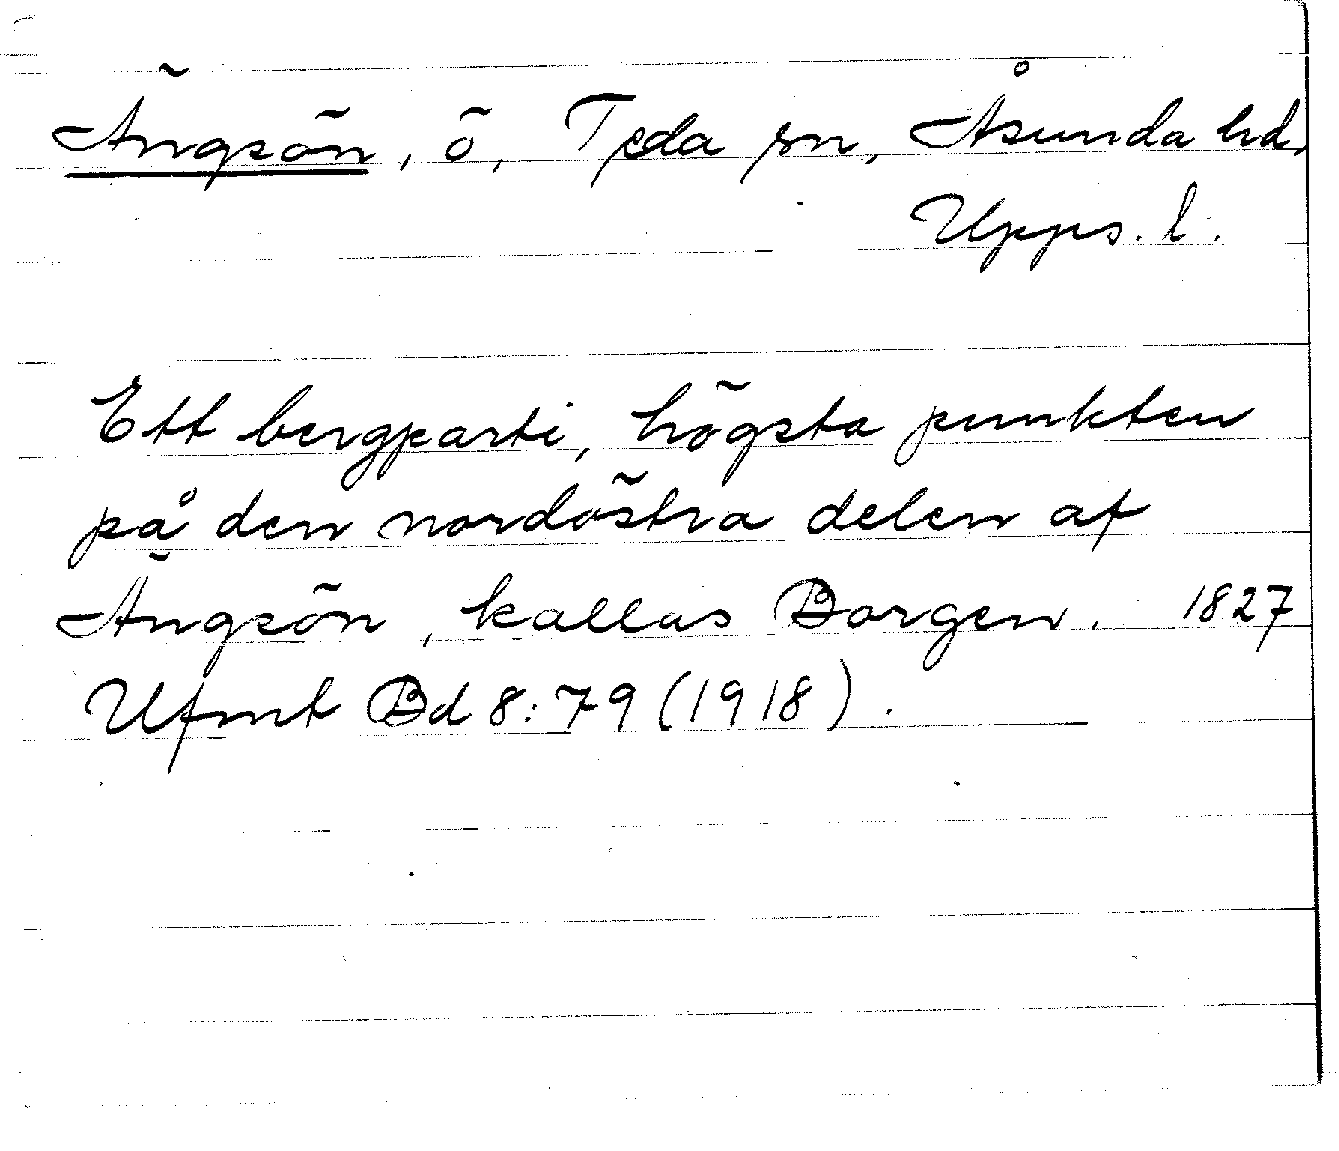 Ängsön, ö, Teda sn, Åsunda hd,
Upps. l.
Ett bergparti, högsta punkten
på den nordöstra delen af
Ängsön, kallas Borgen. 1827
Ufmt Bd 8:79 (1918).